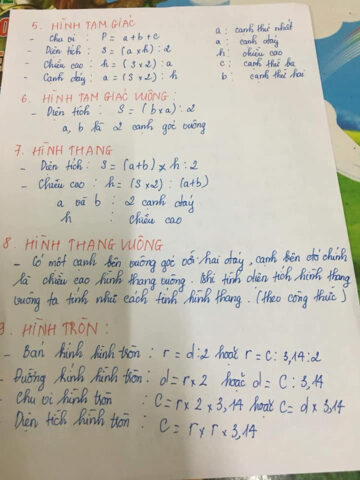 5. HÌNH TAM GIÁC
- Chu vi : P = a + b + c a : cạnh thứ nhất
- Diện tích : S = (a x h) : 2 a : cạnh đáy
- Chiều cao : h = (S x 2) : a h : chiều cao
- Cạnh đáy : a = (S x 2) : h c : cạnh thứ ba
b : cạnh thứ hai
6. HÌNH TAM GIÁC VUÔNG :
- Diện tích : S = (b x a) : 2
a, b là 2 cạnh góc vuông
7. HÌNH THANG
- Diện tích : S = (a + b) x h : 2
- Chiều cao : h = (S x 2) : (a + b)
a và b : 2 cạnh đáy
h : chiều cao
8. HÌNH THANG VUÔNG
- Có một cạnh bên vuông góc với hai đáy, cạnh bên đó chính
là chiều cao hình thang vuông. Khi tính diện tích hình thang
vuông ta tính như cách tính hình thang. (theo công thức)
9. HÌNH TRÒN :
- Bán kính hình tròn : r = d : 2 hoặc r = C : 3,14 : 2
- Đường kính hình tròn : d = r x 2 hoặc d = C : 3,14
- Chu vi hình tròn : C = r x 2 x 3,14 hoặc C = d x 3,14
- Diện tích hình tròn : C = r x r x 3,14